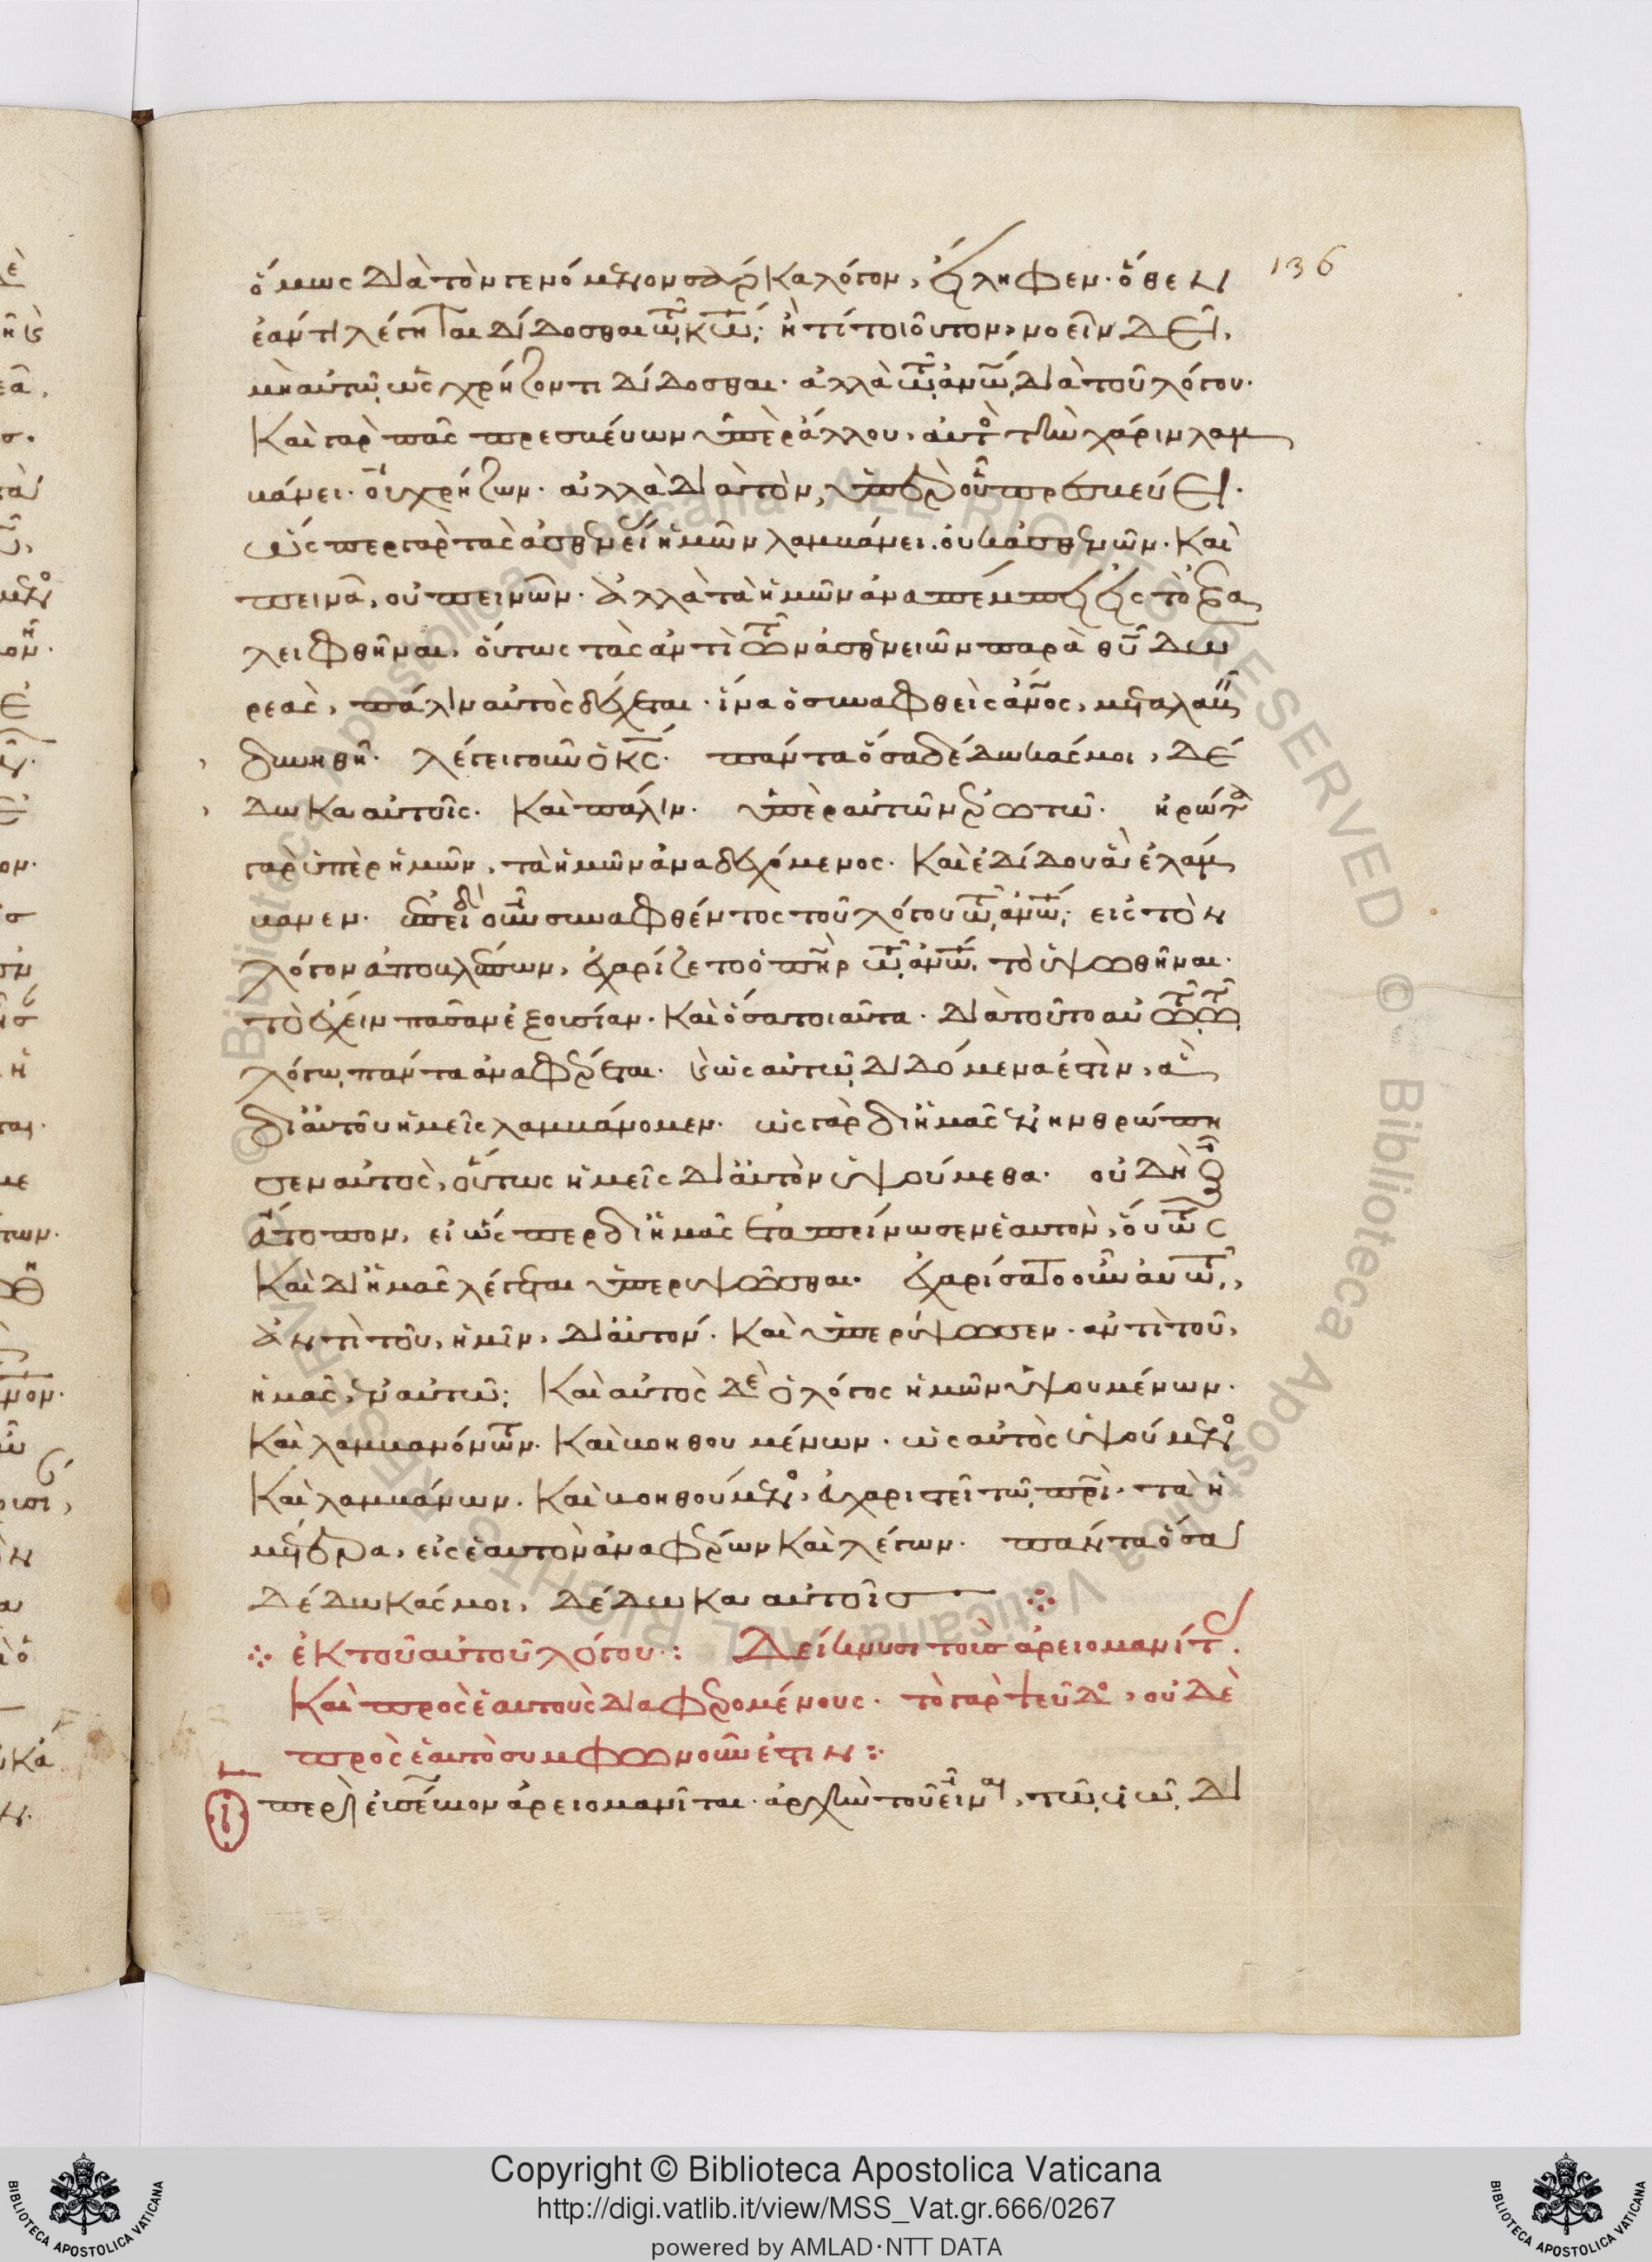 136
ὅμως διὰ τὸν γενόμενον σάρκα λόγον, εἴληφεν· ὅθεν
ἐὰν τὶ λέγηται δίδοσθαι τῷ κῶ; ἢ τί τοιοῦτον, νοεῖν δεῖ,
μὴ αὐτῷ ὡς χρήζοντι δίδοσθαι· ἀλλὰ τῷ ἀνῶ, διὰ τοῦ λόγου·
Καὶ γὰρ πᾶς πρεσβεύων ὑπὲρ ἄλλου, αὐτὸς τὴν χάριν λαμ
βάνει· οὐ χρήζων· ἀλλὰ διὰ τὸν, ὑπὲρ οὗ πρεσβεύει·
ὥσπερ γὰρ τὰς ἀσθενείας ἡμῶν λαμβάνει, οὐκ ἀσθενῶν· Καὶ
πεινᾶ, οὐ πεινῶν· ἀλλὰ τὰ ἡμῶν ἀναπέμπει εἰς τὸ ἐξα
λειφθῆναι, οὕτως τὰς ἀντὶ τῶν ἀσθενειῶν παρὰ θῦ δω
ρεὰς, πάλιν αὐτὸς δέχεται· ἵνα ὁ συναφθεὶς ἄνος, μεταλαβεῖν
δυνηθῆ· λέγει γοῦν ὁ κς· πάντα ὅσα δέδωκάς μοι, δέ
δωκα αὐτοῖς· Καὶ πάλιν· ὑπὲρ αὐτῶν ἐρωτῶ· ἠρώτα
γὰρ ὑπὲρ ἡμῶν, τὰ ἡμῶν ἀναδεχόμενος· Καὶ ἐδίδου ἃ ἐλάμ
βανεν· ἐπειδὴ οὖν συναφθέντος τοῦ λόγου τῷ ἀνῶ; εἰς τὸν
λόγον ἀποβλέπων, ἐχαρίζετο ὁ πηρ τῷ ἀνῶ, τὸ ὑψωθῆναι·
τὸ ἔχειν πᾶσαν ἐξουσίαν· Καὶ ὅσα τοιαῦτα· διὰ τοῦτο αὐτῷ τῷ
λόγω πάντα ἀναφέρεται· καὶ ὡς αὐτῷ διδόμενα ἐστὶν, ἃ
δι αὐτοῦ ἡμεῖς λαμβάνομεν· ὡς γὰρ δι ἡμᾶς ἐνηνθρώπη
σεν αὐτὸς, οὕτως ἡμεῖς δι αὐτὸν ὑψούμεθα· οὐδὲν οὖν
ἄτοπον, εἰ ὥσπερ δι ἡμᾶς ἐταπείνωσεν ἑαυτὸν, οὕτως
Καὶ δι ἡμᾶς λέγεται ὑπερυψῶσθαι· ἐχαρίσατο οὖν αὐτῷ,
ἀντὶ τοῦ, ἡμῖν, δι αὐτόν· Καὶ ὑπερύψωσεν· ἀντὶ τοῦ,
ἡμᾶς, ἐν αὐτῷ; Καὶ αὐτὸς δὲ ὁ λόγος ἡμῶν ὑψουμένων·
Καὶ λαμβανόντων· Καὶ βοηθουμένων· ὡς αὐτὸς ὑψούμενος
Καὶ λαμβάνων· Καὶ βοηθούμενος, εὐχαριστεῖ τῷ πρὶ· τὰ ἡ
μέτερα, εἰς ἑαυτὸν ἀναφέρων Καὶ λέγων· πάντα ὅσα
δέδωκάς μοι, δέδωκα αὐτοῖς
ἐκ τοῦ αὐτοῦ λόγου: Δείκνυσι τοὺς ἀρειομανίτας
Καὶ πρὸς ἑαυτοὺς διαφερομένους· τὸ γὰρ ψεῦδος, οὐδὲ
πρὸς ἑαυτὸ συμφωνοῦν ἐστιν:
περ εἰσέτιμον ἀρειομανῖται· ἀρχὴν τοῦ εἶναι, τῷ υἱῷ δι
Copyright © Biblioteca Apostolica Vaticana
http://digi.vatlib.it/view/MSS_Vat.gr.666/0267
powered by AMLAD·NTT DATA